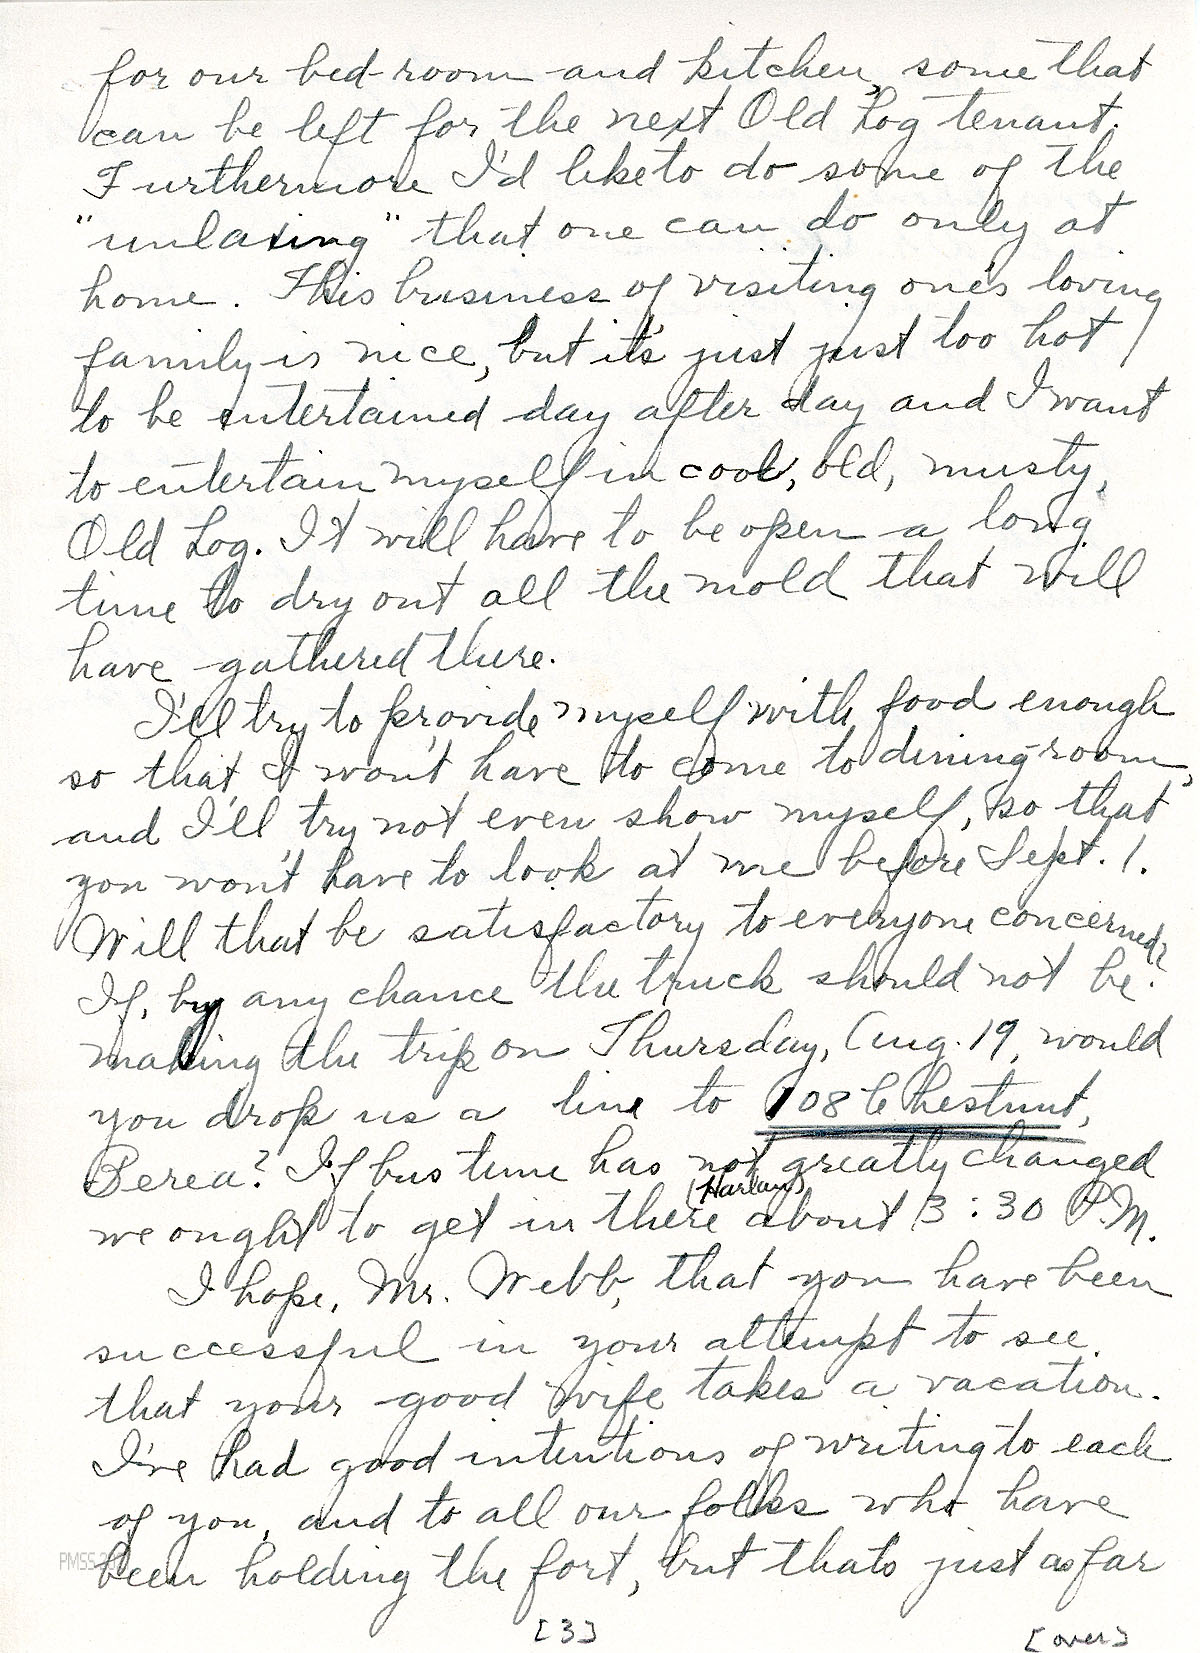 for our bed-room and kitchen, some that
can be left for the next Old Log tenant.
Furthermore I'd like to do some of the
"unlaxing" that one can do only at
home. This business of visiting one's loving
family is nice, but it's just just too hot
to be entertained day after day and I want
to entertain myself in cool, old, musty,
Old Log. It will have to be open a long
time to dry out all the mold that will
have gathered there.
I'll try to provide myself with food enough
so that I won't have to come to dining room,
and I'll try not even show myself, so that
you won't have to look at me before Sept. 1.
Will that be satisfactory to everyone concerned?
If, by any chance the truck should not be
making the trip on Thursday, Aug. 19, would
you drop us a line to 108 Chestnut,
Berea? If bus time has not greatly changed
(Harlan)
we ought to get in there about 3:30 P.M.
I hope, Mr. Webb, that you have been
successful in your attempt to see
that your good wife takes a vacation.
I've had good intentions of writing to each
of you, and to all our folks who have
been holding the fort, but thats just as far
[3] [over]